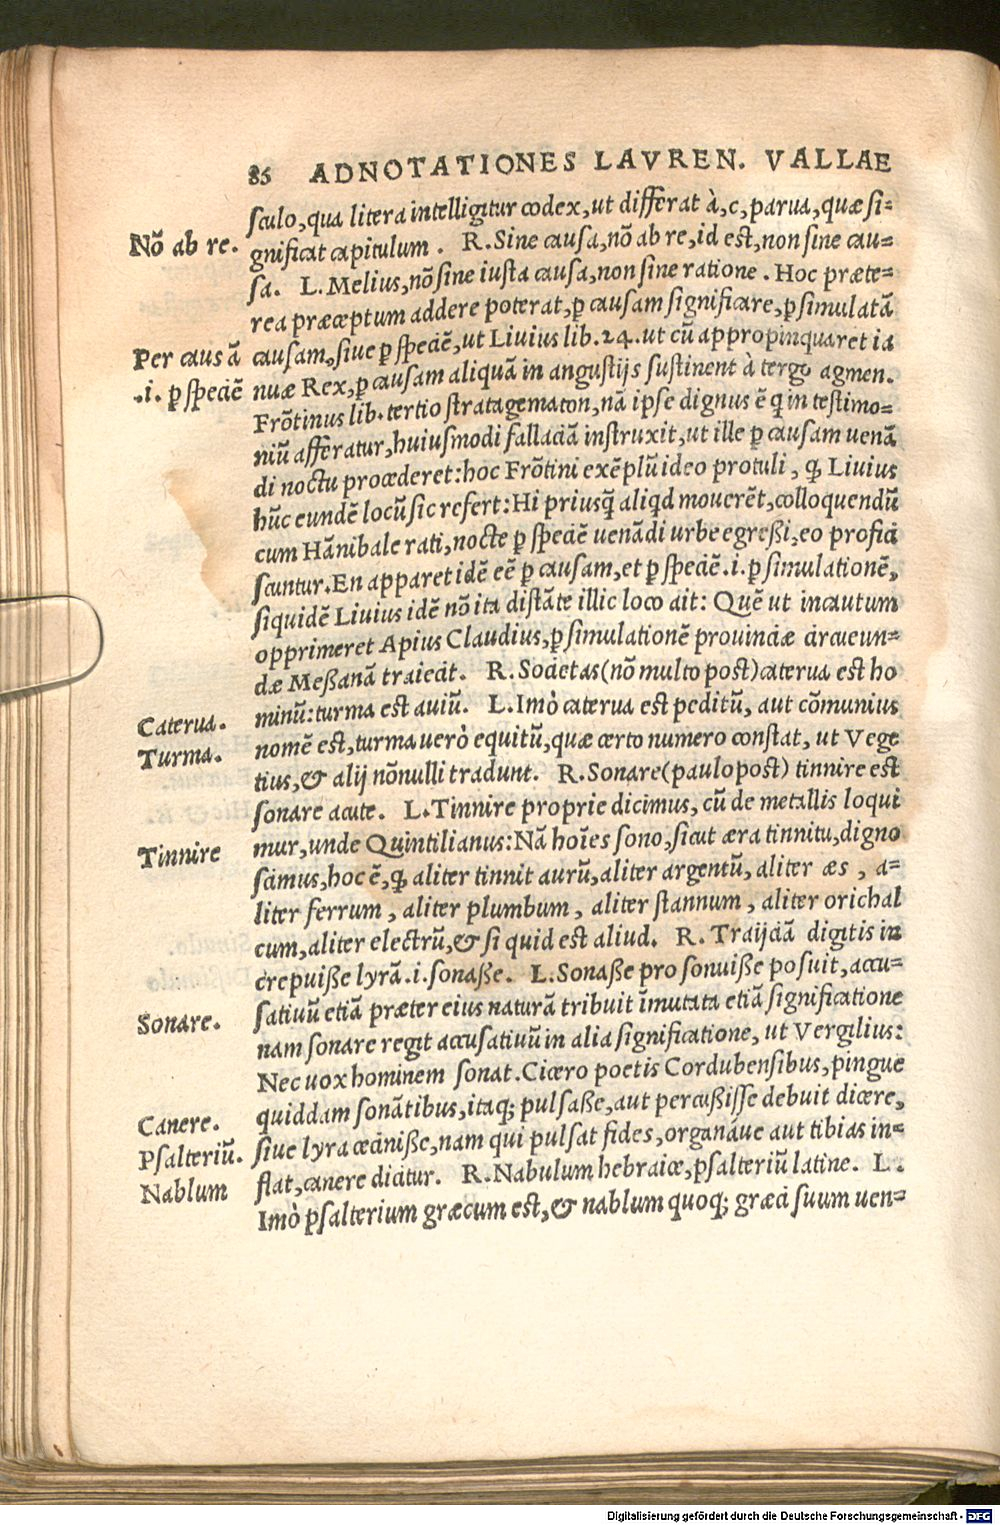 86 ADNOTATIONES LAVREN. VALLAE
sculo, qua litera intelligitur codex, ut differat à, c, parua, quæ si-
Nõ ab re. gnificat capitulum. R. Sine causa, nõ ab re, id est, non sine cau-
sa. L. Melius, nõ sine iusta causa, non sine ratione. Hoc præte-
rea præceptum addere poterat, ꝑ causam significare, ꝑ simulatã
Per causã causam, siue ꝑ speciẽ, ut Liuius lib. 24. ut cũ appropinquaret ia
.i. ꝑ speciẽ nuæ Rex, ꝑ causam aliquã in angustijs sustinent à tergo agmen.
Frõtinus lib. tertio stratagematon, nã ipse dignus ẽ q in testimo-
niũ afferatur, huiusmodi fallaciã instruxit, ut ille ꝑ causam uenã
di noctu procederet: hoc Frõtini exẽplũ ideo protuli, ꝙ Liuius
hũc eundẽ locũ sic refert: Hi priusq̃ aliqd mouerẽt, colloquendũ
cum Hãnibale rati, nocte ꝑ speciẽ uenãdi urbe egreßi, eo profici
scuntur. En apparet idẽ eẽ ꝑ causam, et ꝑ speciẽ .i. ꝑ simulationẽ,
siquidẽ Liuius idẽ nõ ita distãte illic loco ait: Quẽ ut incautum
opprimeret Apius Claudius, ꝑ simulationẽ prouinciæ circueun-
dæ Meßanã traiecit. R. Societas (nõ multo post) caterua est ho
Caterua. minũ: turma est auiũ. L. Imò caterua est peditũ, aut cõmunius
Turma. nomẽ est, turma uerò equitũ, quæ certo numero constat, ut Vege
tius, & alij nõnulli tradunt. R. Sonare (paulo post) tinnire est
sonare acute. L. Tinnire proprie dicimus, cũ de metallis loqui
Tinnire mur, unde Quintilianus: Nã hoĩes sono, sicut æra tinnitu, digno
scimus, hoc ẽ, ꝙ aliter tinnit aurũ, aliter argentũ, aliter æs, a-
liter ferrum, aliter plumbum, aliter stannum, aliter orichal
cum, aliter electrũ, & si quid est aliud. R. Traijciã digitis in
crepuiße lyrã .i. sonaße. L. Sonaße pro sonuiße posuit, accu-
Sonare. satiuũ etiã præter eius naturã tribuit ĩmutata etiã significatione
nam sonare regit accusatiuũ in alia significatione, ut Vergilius:
Nec uox hominem sonat. Cicero poetis Cordubensibus, pingue
Canere. quiddam sonãtibus, itaq; pulsaße, aut percußisse debuit dicere,
Psalteriũ. siue lyra ceciniße, nam qui pulsat fides, organáue aut tibias in-
Nablum flat, canere dicitur. R. Nabulum hebraice, psalteriũ latine. L.
Imò psalterium græcum est, & nablum quoq; græci suum uen-
Digitalisierung gefördert durch die Deutsche Forschungsgemeinschaft - DFG